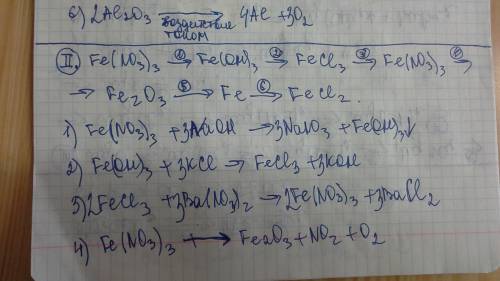 6) 2Al2O3 воздействие током → 4Al + 3O2
II. Fe(NO3)3 →① Fe(OH)3 →② FeCl3 →③ Fe(NO3)3 →④
→ Fe2O3 →⑤ Fe →⑥ FeCl2.
1) Fe(NO3)3 + 3NaOH → 3NaNO3 + Fe(OH)3↓
2) Fe(OH)3 + 3KCl → FeCl3 + 3KOH
3) 2FeCl3 + 3Ba(NO3)2 → 2Fe(NO3)3 + 3BaCl2
4) Fe(NO3)3 → Fe2O3 + NO2 + O2